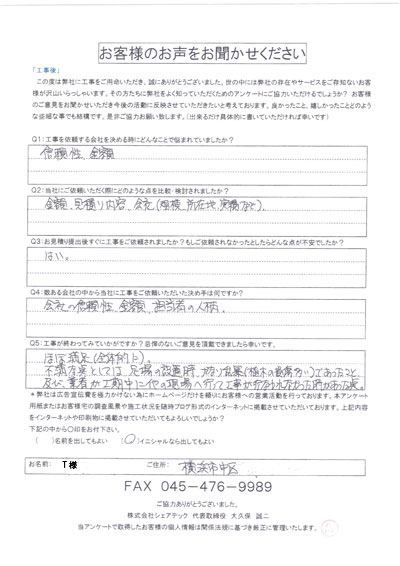 お客様のお声をお聞かせください
「工事後」
この度は弊社に工事をご用命いただき、誠にありがとうございました。世の中には弊社の存在やサービスをご存知ないお客
様が沢山いらっしゃいます。その方たちに弊社をよく知っていただくためのアンケートにご協力いただけるでしょうか? お客様
のご意見をお聞かせいただき今後の活動に反映させていただきたいと考えております。良かったこと、嬉しかったことどのよう
な些細な事でも結構です。是非ご協力お願い致します。(出来るだけ具体的に書いていただければ幸いです)
Q1:工事を依頼する会社を決める時にどんなことで悩まれていましたか?
信頼性、金額
Q2:当社にご依頼いただく際にどのような点を比較・検討されましたか?
金額、見積り内容、会社(規模、所在地、実績など)。
Q3:お見積り提出後すぐに工事をご依頼されましたか?もしご依頼されなかったとしたらどんな点が不安でしたか?
はい。
Q4:数ある会社の中から当社に工事をご依頼いただいた決め手は何ですか?
会社の信頼性、金額、担当者の人柄
Q5:工事が終わってみていかがですか?忌憚のないご意見を頂戴できましたら幸いです。
ほぼ満足(全体的に)。
不満な点としては、足場の設置時、
及び、業者が工期中に他の現場へ行って工事が行なわれなかった時があった点。
*弊社では広告宣伝費を極力かけない為にホームページだけを頼りにお客様への営業活動を行っております。本アンケート
用紙またはお客様宅の調査風景や施工状況を随時ブログ形式のインターネットに掲載させていただいております。上記内容
をインターネットや印刷物に掲載させていただいてもよろしいでしょうか?
下記の中から〇印をお付下さい。
( )名前を出してもよい (〇)イニシャルなら出してもよい
お名前: T様 ご住所: 横浜市中区
FAX 045-476-9989
ご協力ありがとうございました。
株式会社シェアテック 代表取締役 大久保 誠二
当アンケートで取得したお客様の個人情報は関係法規に基づき厳正に管理いたします。